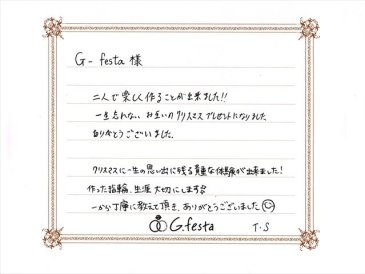 G-festa 様
二人で楽しく作ることが出来ました!!
一生忘れない お互いのクリスマスプレゼントになりました
ありがとうございました。
クリスマスに一生の思い出に残る貴重な体験が出来ました!
作った指輪、生涯大切にします
一から丁寧に教えて頂き、ありがとうございました
G.festa
T.S